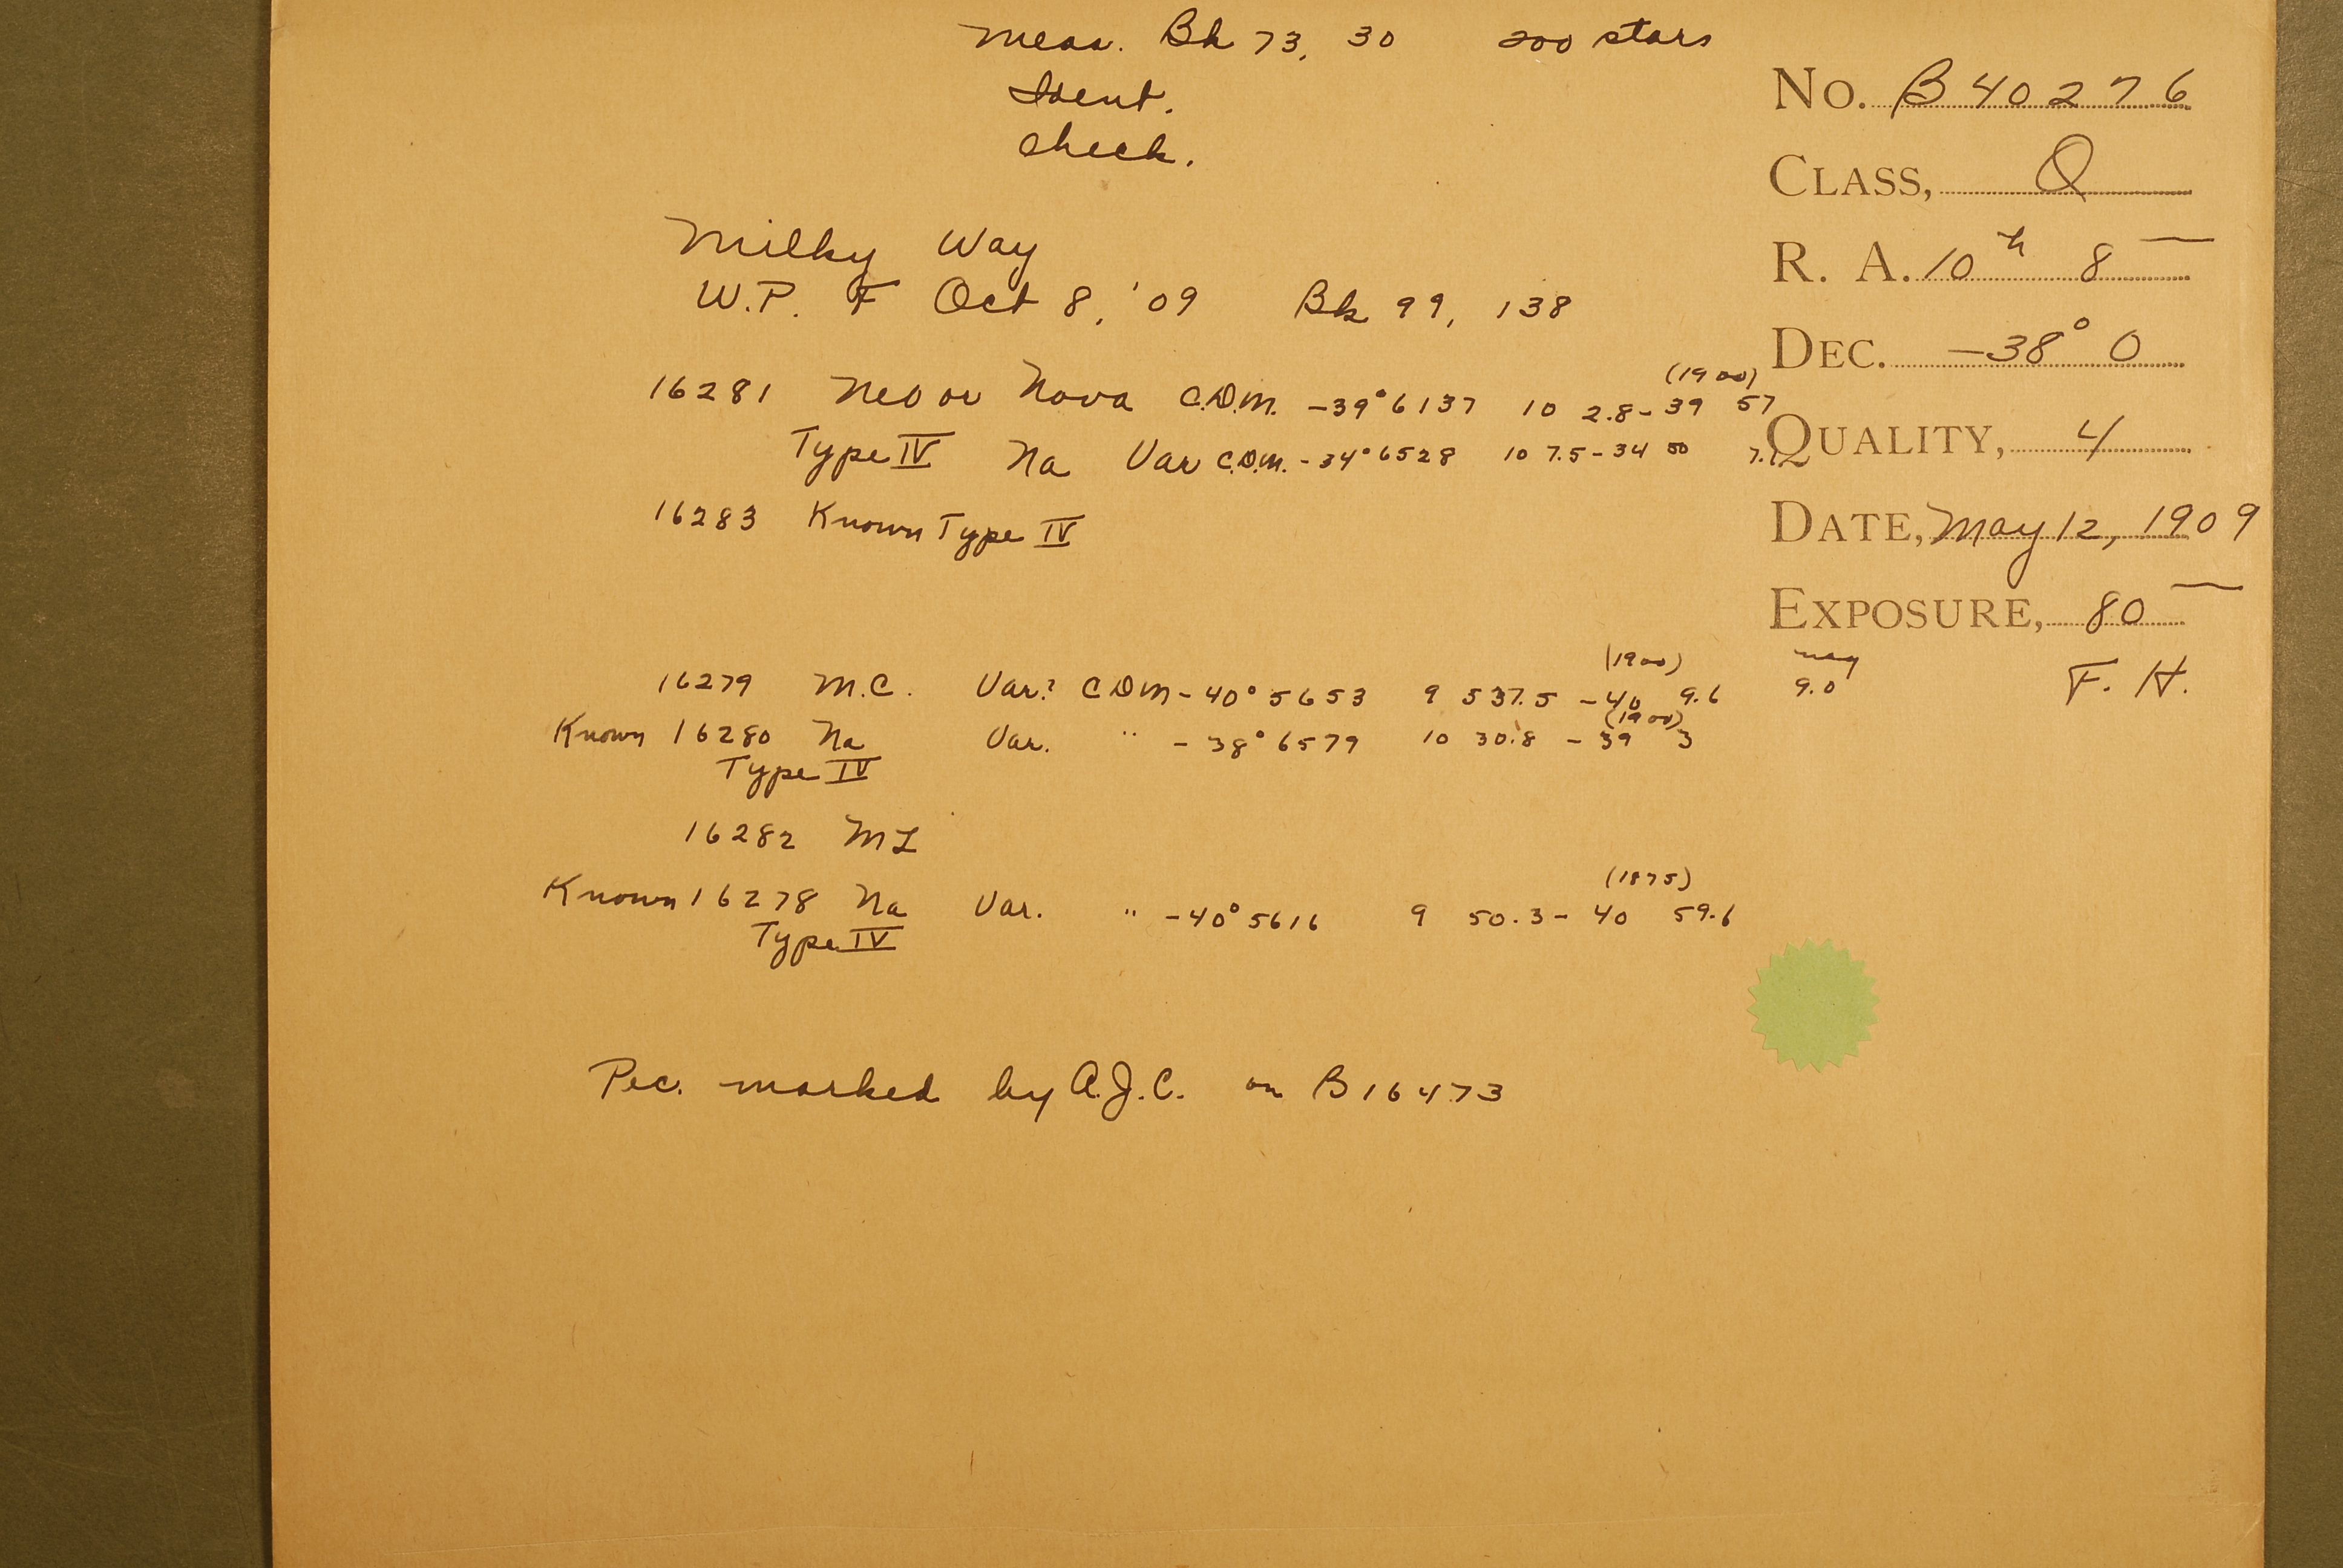 Meas. Bk 73, 30 200 stars
Ident.
Check.
No. B40276
CLASS, Q
R. A. 10h 8—
DEC. —38° 0
QUALITY, 4
DATE, May 12, 1909
EXPOSURE, 80—
F. H.
Milky Way
W.P. F Oct 8, '09 Bk 99, 138
(1900)
16281 Neb or Nova C.D.M. -39°6137 10 2.8-39 57
Type IV Na Var C.D.M. -34°6528 10 7.5-34 50
16283 Known Type IV
(1900) mag
16279 M.C. Var? C D M -40°5653 9 537.5 -40 9.6 9.0
(1900)
Known 16280 Na Var. " -38°6579 10 30.8 -39 3
Type IV
16282 M
(1875)
Known 16278 Na Var. " -40°5616 9 50.3- 40 59.6
Type IV
Pec. marked by A.J.C. on B16473